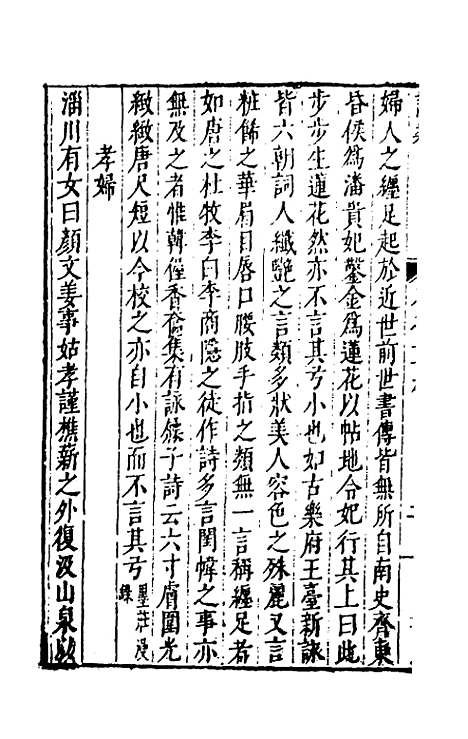 婦人之纏足起於近世前世書傳皆無所自南史齊東
昏侯爲潘貴妃鑿金爲蓮花以帖地令妃行其上曰此
步步生蓮花然亦不言其弓小也如古樂府玉臺新詠
皆六朝詞人纖艷之言類多狀美人容色之殊麗又言
粧飾之華眉目唇口腰肢手指之類無一言稱纏足者
如唐之杜牧李白李商隱之徒作詩多言閨幃之事亦
無及之者惟韓偓香奩集有詠屧子詩云六寸膚圍光
緻緻唐尺短以今校之亦自小也而不言其弓墨莊漫錄
孝婦
淄川有女曰顏文姜事姑孝謹樵薪之外復汲山泉以